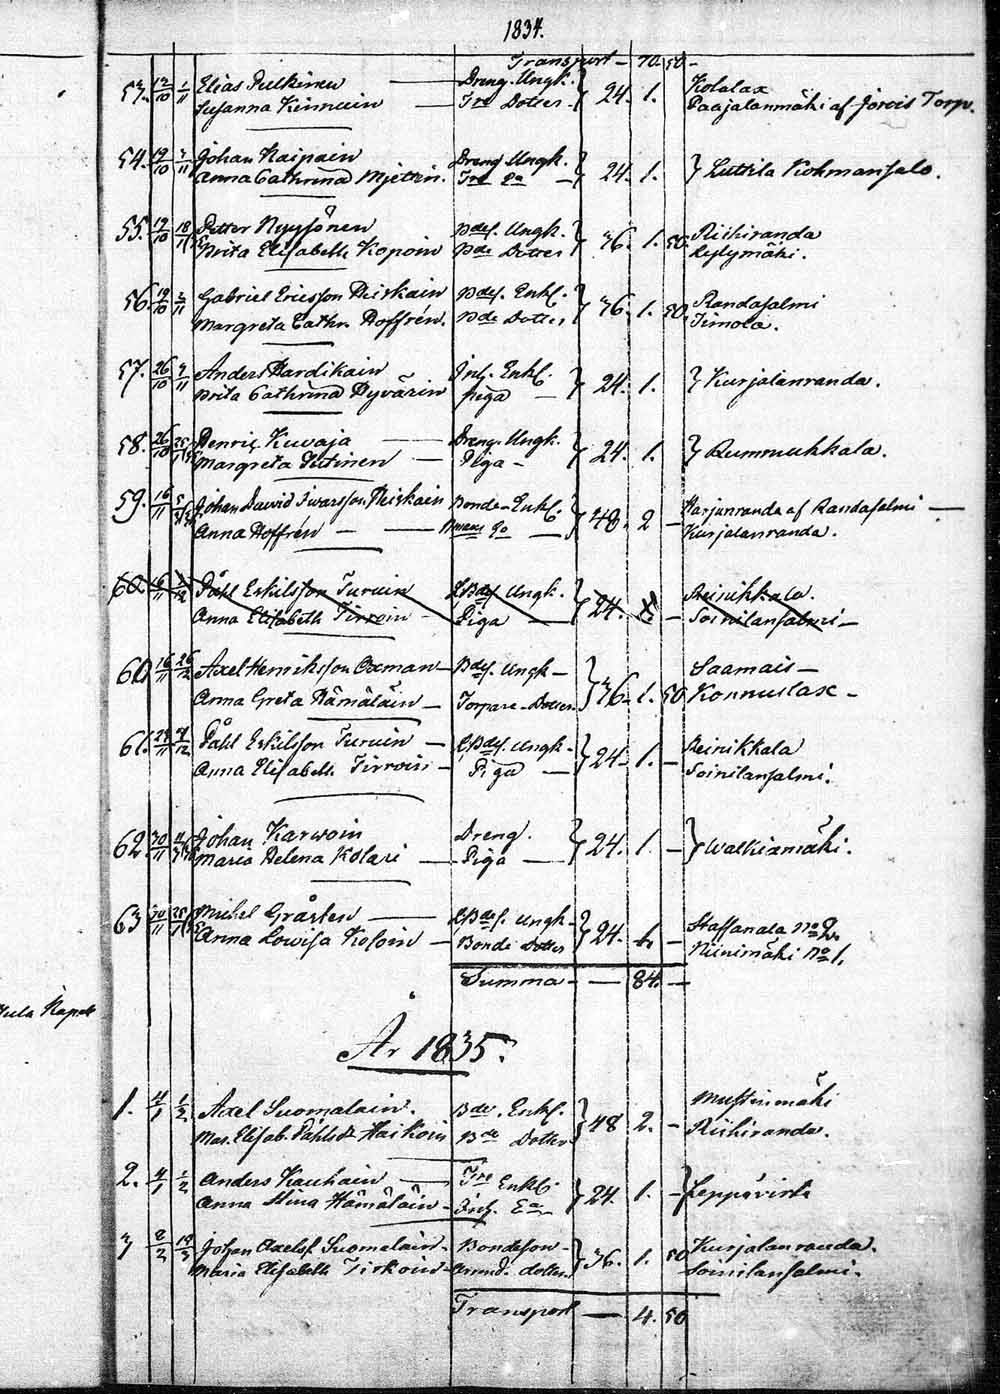 1834.
Transport — 70. 50 —
53. 12/10 1/11 Elias Pulkinen — Dreng. Ungk. } 24. 1. Kotalax
Susanna Kinnuin — Tre Dotter Paajalanmäki af Jorois Torp.
54. 19/10 2/11 Johan Kaipain Dreng Ungk. } 24. 1. } Luttila Kohmansalo.
Anna Cathrina Mjettin. Tre
55. 19/10 Petter Nyyssönen Bdes. Ungk. } 36. 1. 50 Riihiranda
Brita Elisabeth Kopoin Bde Dotter
56. 19/10 2/11 Gabriel Ericsson Reiskain Bdes. Enkl. } 36. 1. 50. Randasalmi
Margreta Cathr. Hoffrén. Bde Dotter Timola.
57. 26/10 Anders Pardikain Inh. Enkl. } 24. 1. } Kurjalanranda.
Brita Cathrina Hyvärin piga —
58. 26/10 Henric Kuvaja — Dreng. Ungk. } 24. 1. } Rummuhkala.
Margreta Putinen — Piga —
59. 16/11 Johan Dawid Iwarsson Reiskain Bonde Enkl. } 48. 2 — Harjunranda af Randasalmi —
Anna Hoffrén — Kurjalanranda.
60. 16/11 Påhl Eskilsson Turuin LBdes Ungk. } 24. 1. — Reinikkala.
Anna Elisabeth Tirroin — Piga — Soinilansalmi —
60. 16/11 26/12 Axel Henriksson Oxman — Bdes. Ungk — } 36. 1. 50 Saamais —
Anna Greta Hämäläin — Torpare-Dotter Konnuslax —
61. 23/11 Påhl Eskilsson Turuin — LBdes. Ungk. } 24. 1. — Reinikkala
Anna Elisabeth Tirroin — Piga — Soinilansalmi.
62. 30/11 Johan Karwoin Dreng. } 24. 1. — } Walkiamäki.
Maria Helena Kolari — Piga —
63 30/11 Michel Gråsten — LBdes. Ungk. } 24. 1. — Staffanala No 2.
Anna Lowisa Koloin — Bonde Dotter Niinimäki No 1.
Summa — — 84. —
År 1835.
1. 4/1 1/2 Axel Suomalain. Bde. Enkl. } 48 2. — Mustinmäki
Mar. Elisab. Påhlsdr Haikoin Bde Dotter Riihiranda.
2. 4/1 1/2 Anders Kauhain — Tre Enkl. } 24. 1. — } Leppävirta
Anna Stina Hämäläin — Inh.
3 2/2 Johan Axelss. Suomalain. Bondeson — } 36. 1. 50 Kurjalanranda.
Maria Elisabeth Tirkoin — dotter Soinilansalmi.
Transport — 4. 50